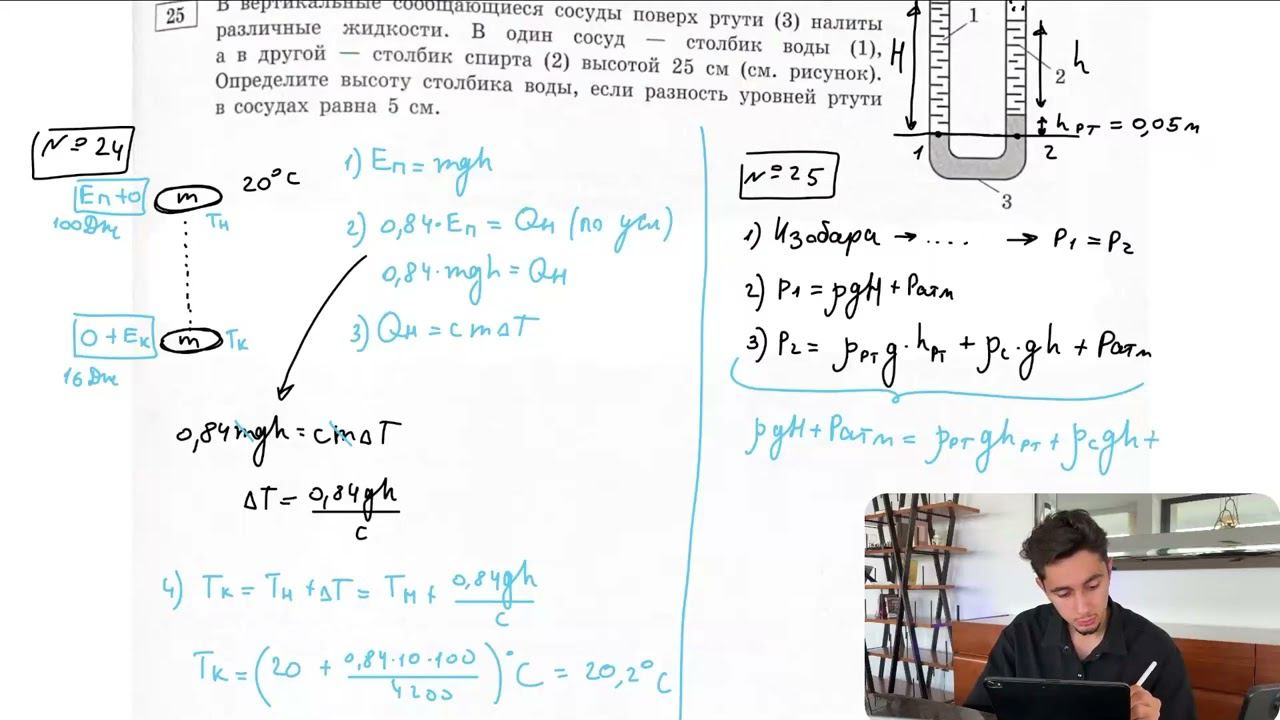 25
В вертикальные сообщающиеся сосуды поверх ртути (3) налиты
различные жидкости. В один сосуд — столбик воды (1),
а в другой — столбик спирта (2) высотой 25 см (см. рисунок).
Определите высоту столбика воды, если разность уровней ртути
в сосудах равна 5 см.
H
1
2
h
hрт = 0,05 м
1
2
3
№24
Eп+0
100Дж
m
Tн
20°C
0+Eк
16 Дж
m
Tк
1) Eп = mgh
2) 0,84·Eп = Qн (по усл)
0,84·mgh = Qн
3) Qн = cmΔT
0,84mgh = cmΔT
ΔT = 0,84gh / c
4) Tк = Tн + ΔT = Tн + 0,84gh / c
Tк = (20 + 0,84·10·100 / 4200)°C = 20,2°C
№25
1) Изобара → .... → P1 = P2
2) P1 = ρgH + Pатм
3) P2 = ρрт g·hрт + ρс·gh + Pатм
ρgH + Pатм = ρрт ghрт + ρсgh +